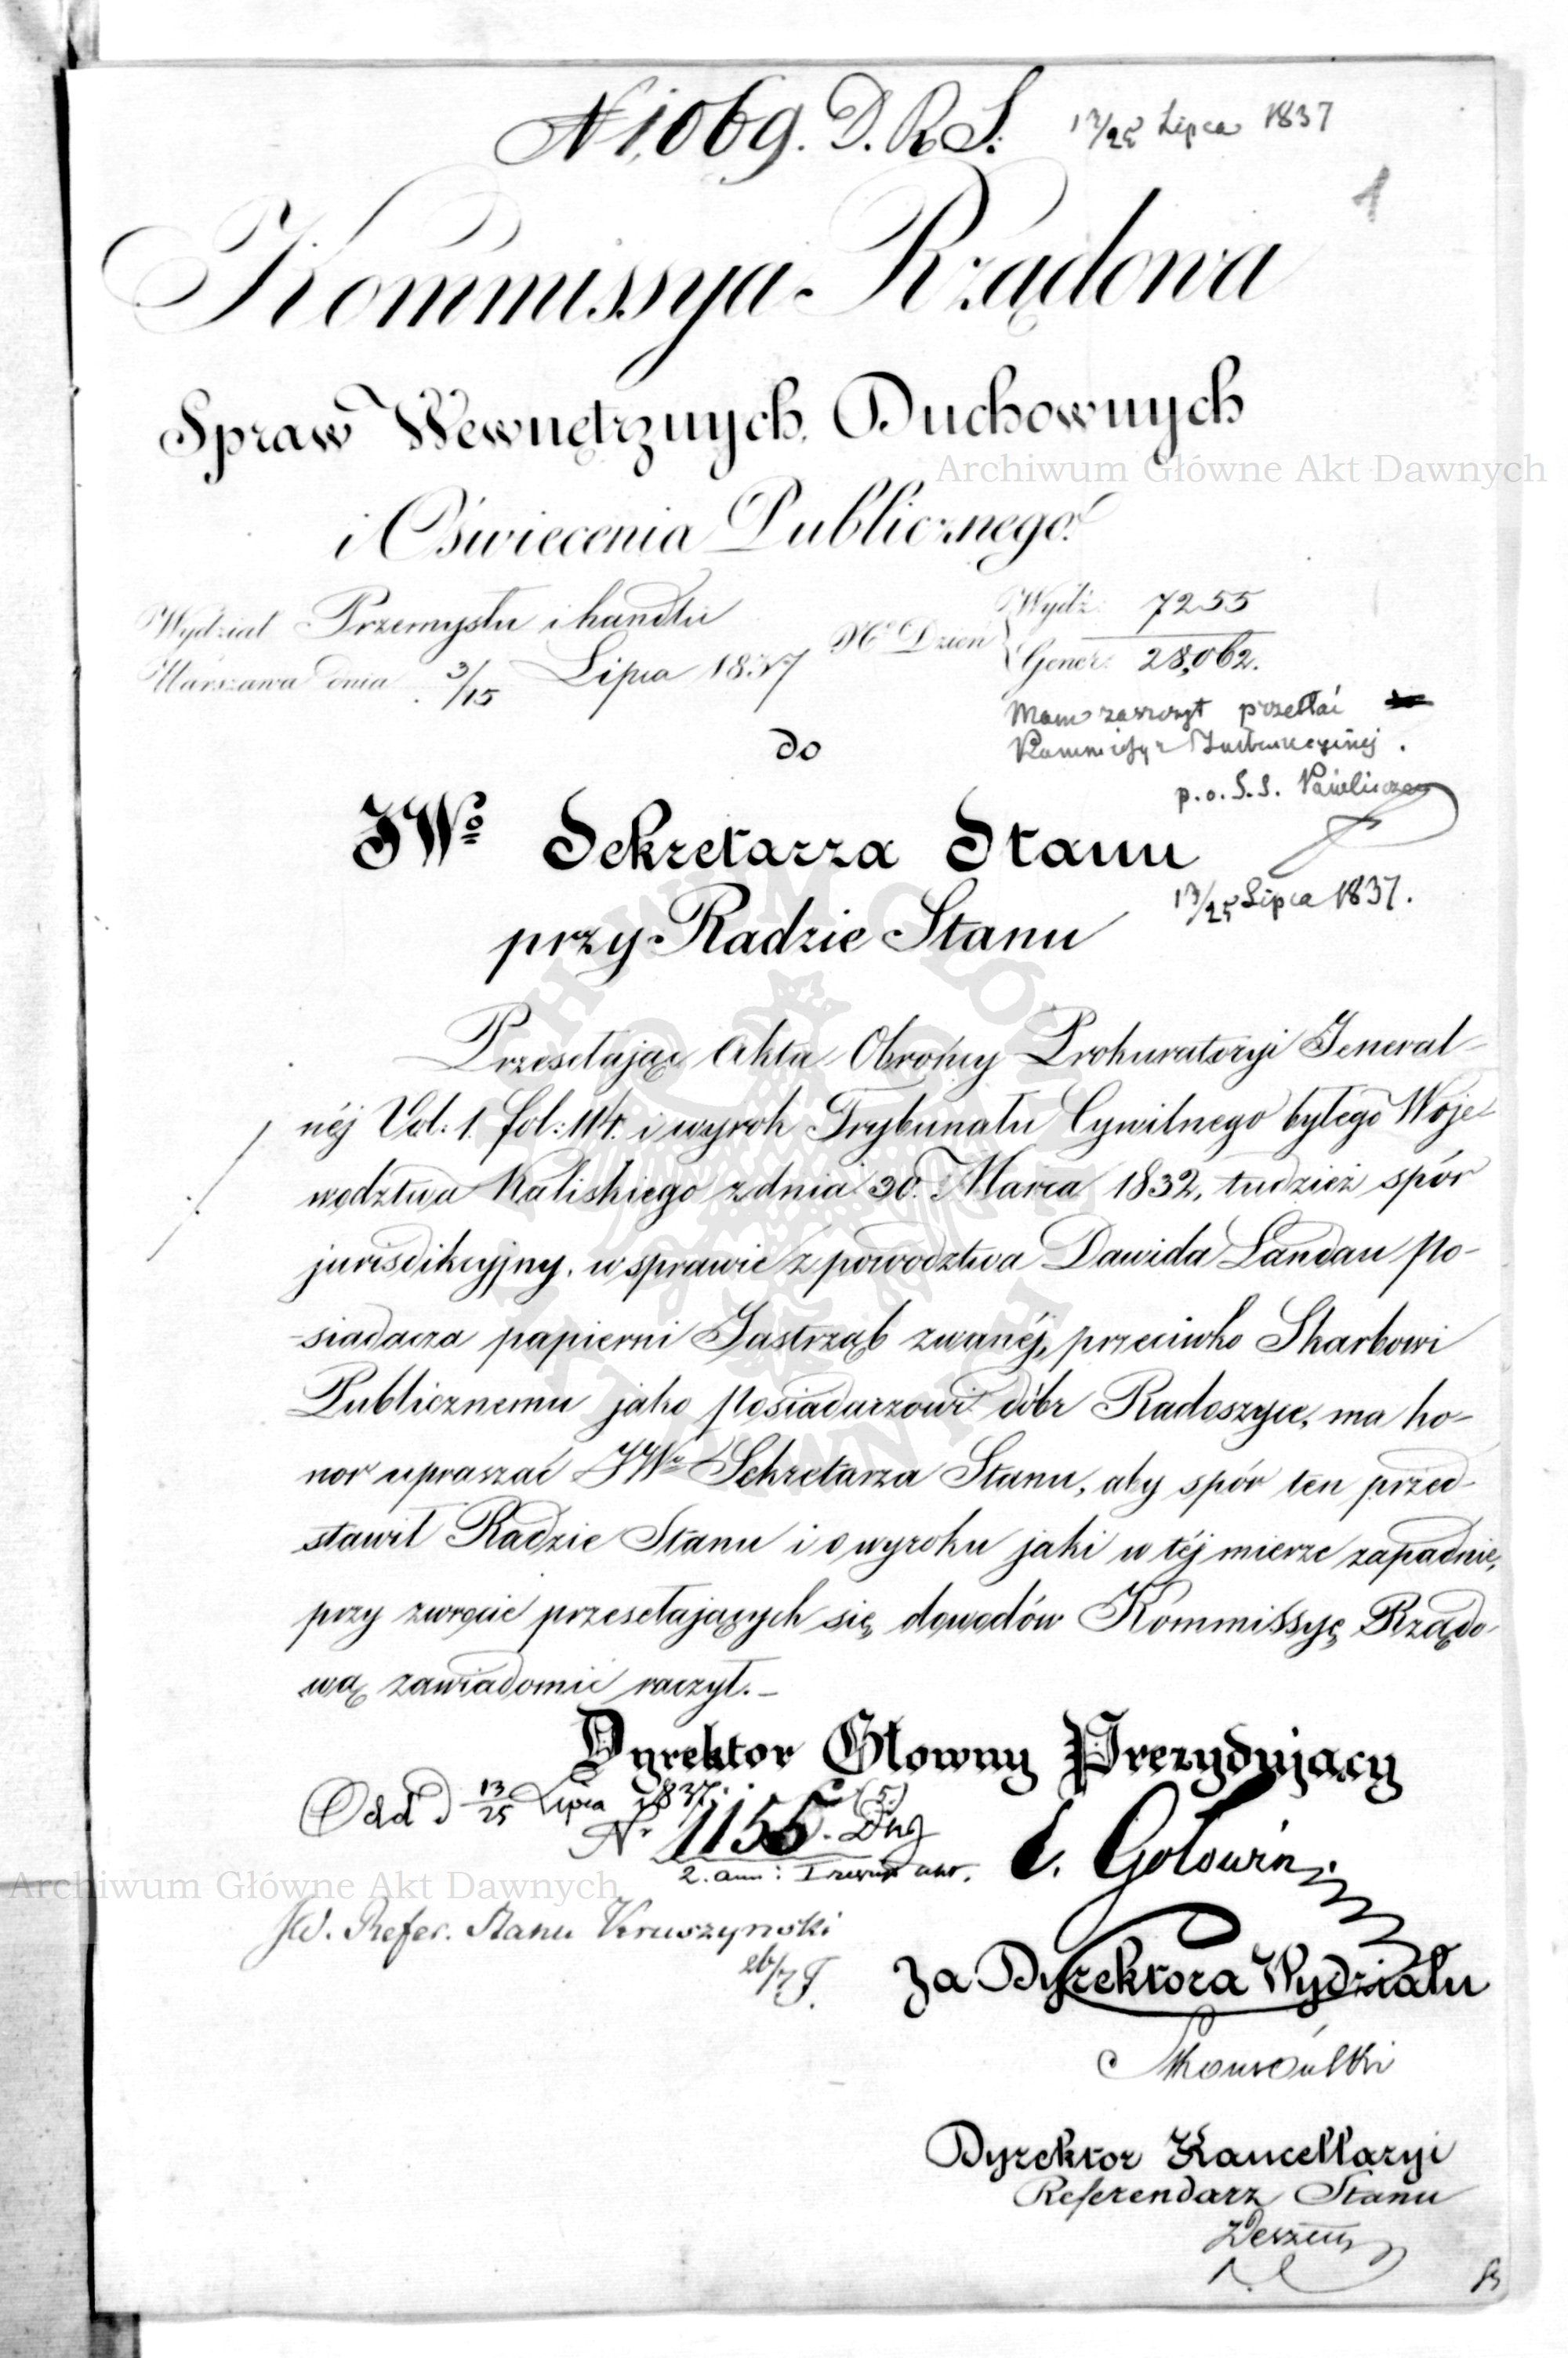 N 1,069. D. R. S. 13/25 Lipca 1837
1
Kommissya Rządowa
Spraw Wewnętrznych, Duchownych
Archiwum Główne Akt Dawnych
i Oświecenia Publicznego.
Wydział Przemysłu i handlu
Warszawa dnia 3/15 Lipca 1837
No Dzien Wydz: 7255
Gener: 28,062.
Mam zaszczyt przesłać
Kommissyi Instrukcyjnej.
p. o. S. S.
do
JWo Sekretarza Stanu
13/25 Lipca 1837.
przy Radzie Stanu
Przesełając Akta Obrońcy Prokuratoryi Jeneral-
néj Vol: 1. fol: 114. i wyrok Trybunału Cywilnego byłego Woje-
wodztwa Kaliskiego z dnia 30. Marca 1832, tudzież spór
jurisdikcyjny, w sprawie z powodztwa Dawida Landau po-
siadacza papierni Jastrząb zwanéj, przeciwko Skarbowi
Publicznemu jako posiadaczowi dóbr Radoszyce, ma ho-
nor upraszać JWo Sekretarza Stanu, aby spór ten przed-
stawił Radzie Stanu i o wyroku jaki w téj mierze zapadnie,
przy zwrócie przesełających się dowodów Kommissyę Rządo-
wą zawiadomić raczył. –
Dyrektor Głowny Prezydujący
Odd d 13/25 Lipca 1837. (5.)
Nr 1155. Dng
2. ann: I
Archiwum Główne Akt Dawnych
Gołowin
JW. Refer. Stanu Kruszynski
26/7
Za Dyrektora Wydziału
Dyrektor Kancellaryi
Referendarz Stanu